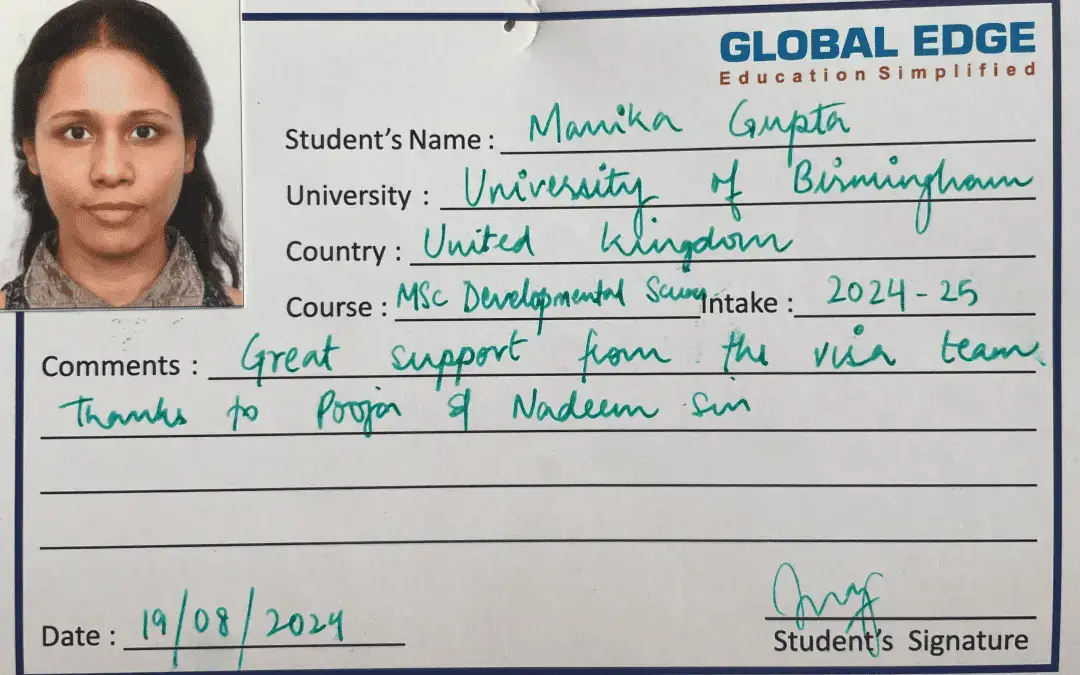 GLOBAL EDGE
Education Simplified
Student's Name : Manika Gupta
University : University of Birmingham
Country : United Kingdom
Course : MSc Developmental Intake : 2024-25
Comments : Great support from the visa team
Thanks to Pooja & Nadeem Sir
Date : 19/08/2024
Student's Signature